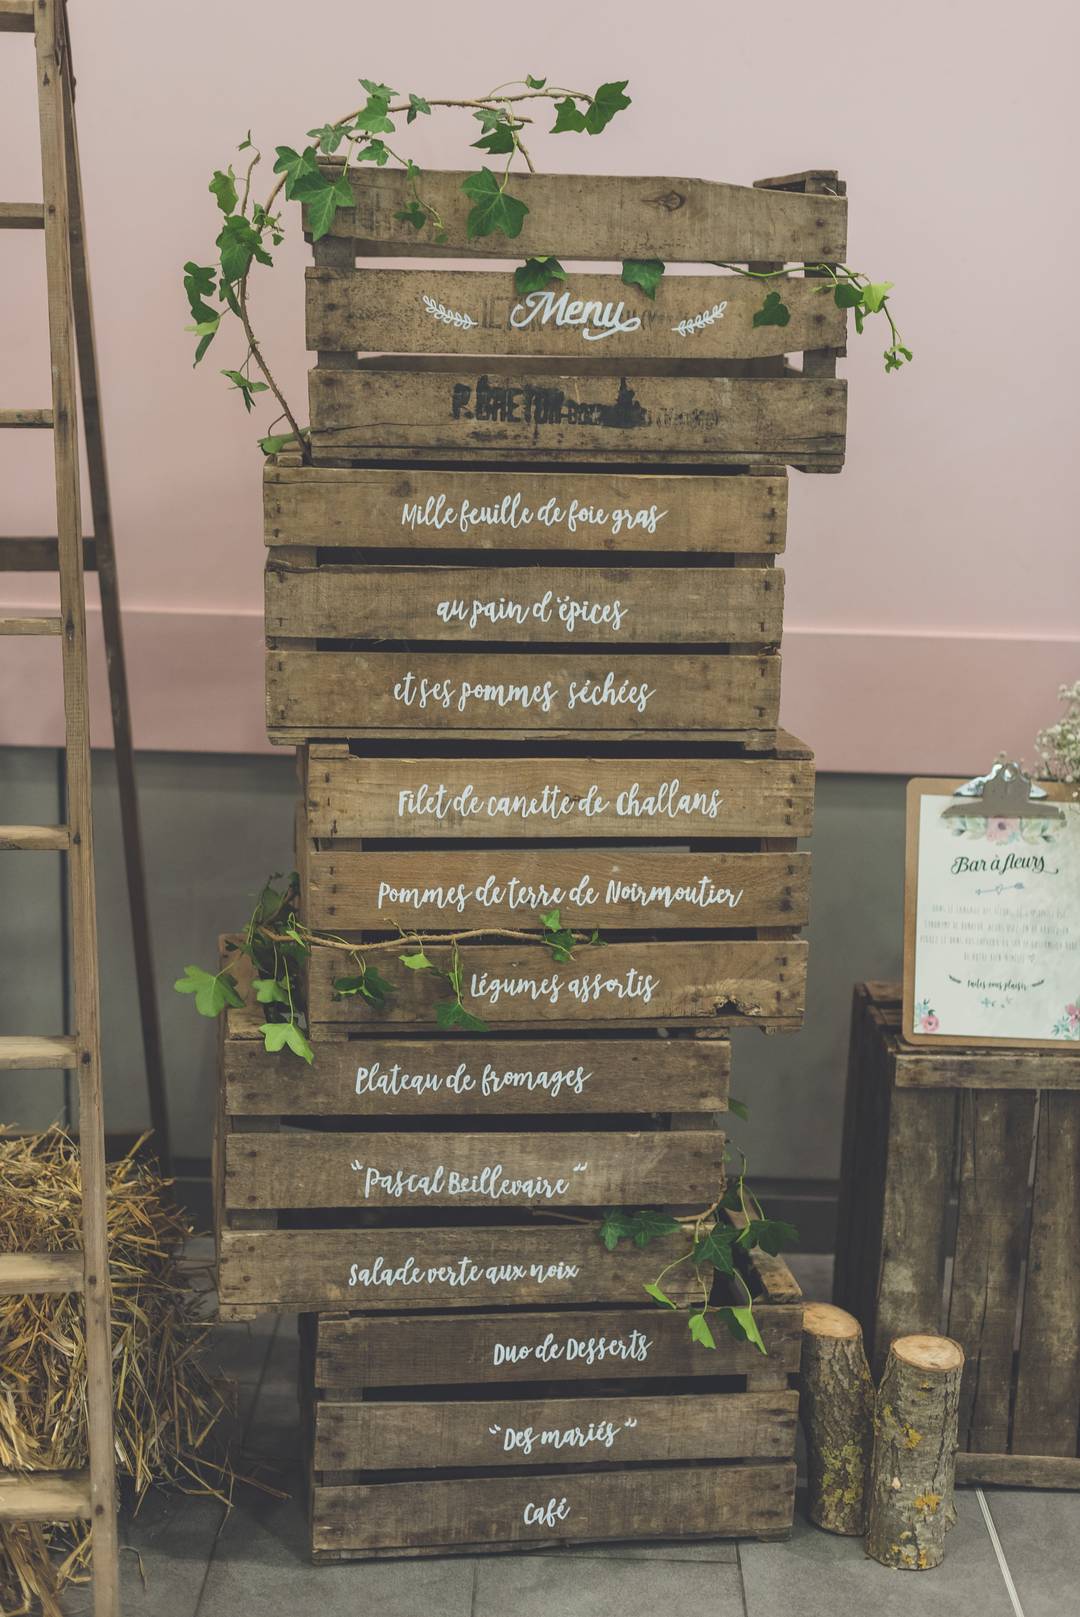 Menu
P. BRETON
Mille feuille de foie gras
au pain d'épices
et ses pommes séchées
Filet de canette de Challans
Pommes de terre de Noirmoutier
Légumes assortis
Plateau de fromages
"Pascal Beillevaire"
Salade verte aux noix
Duo de Desserts
"Des mariés"
Café
Bar à fleurs
faites vous plaisir